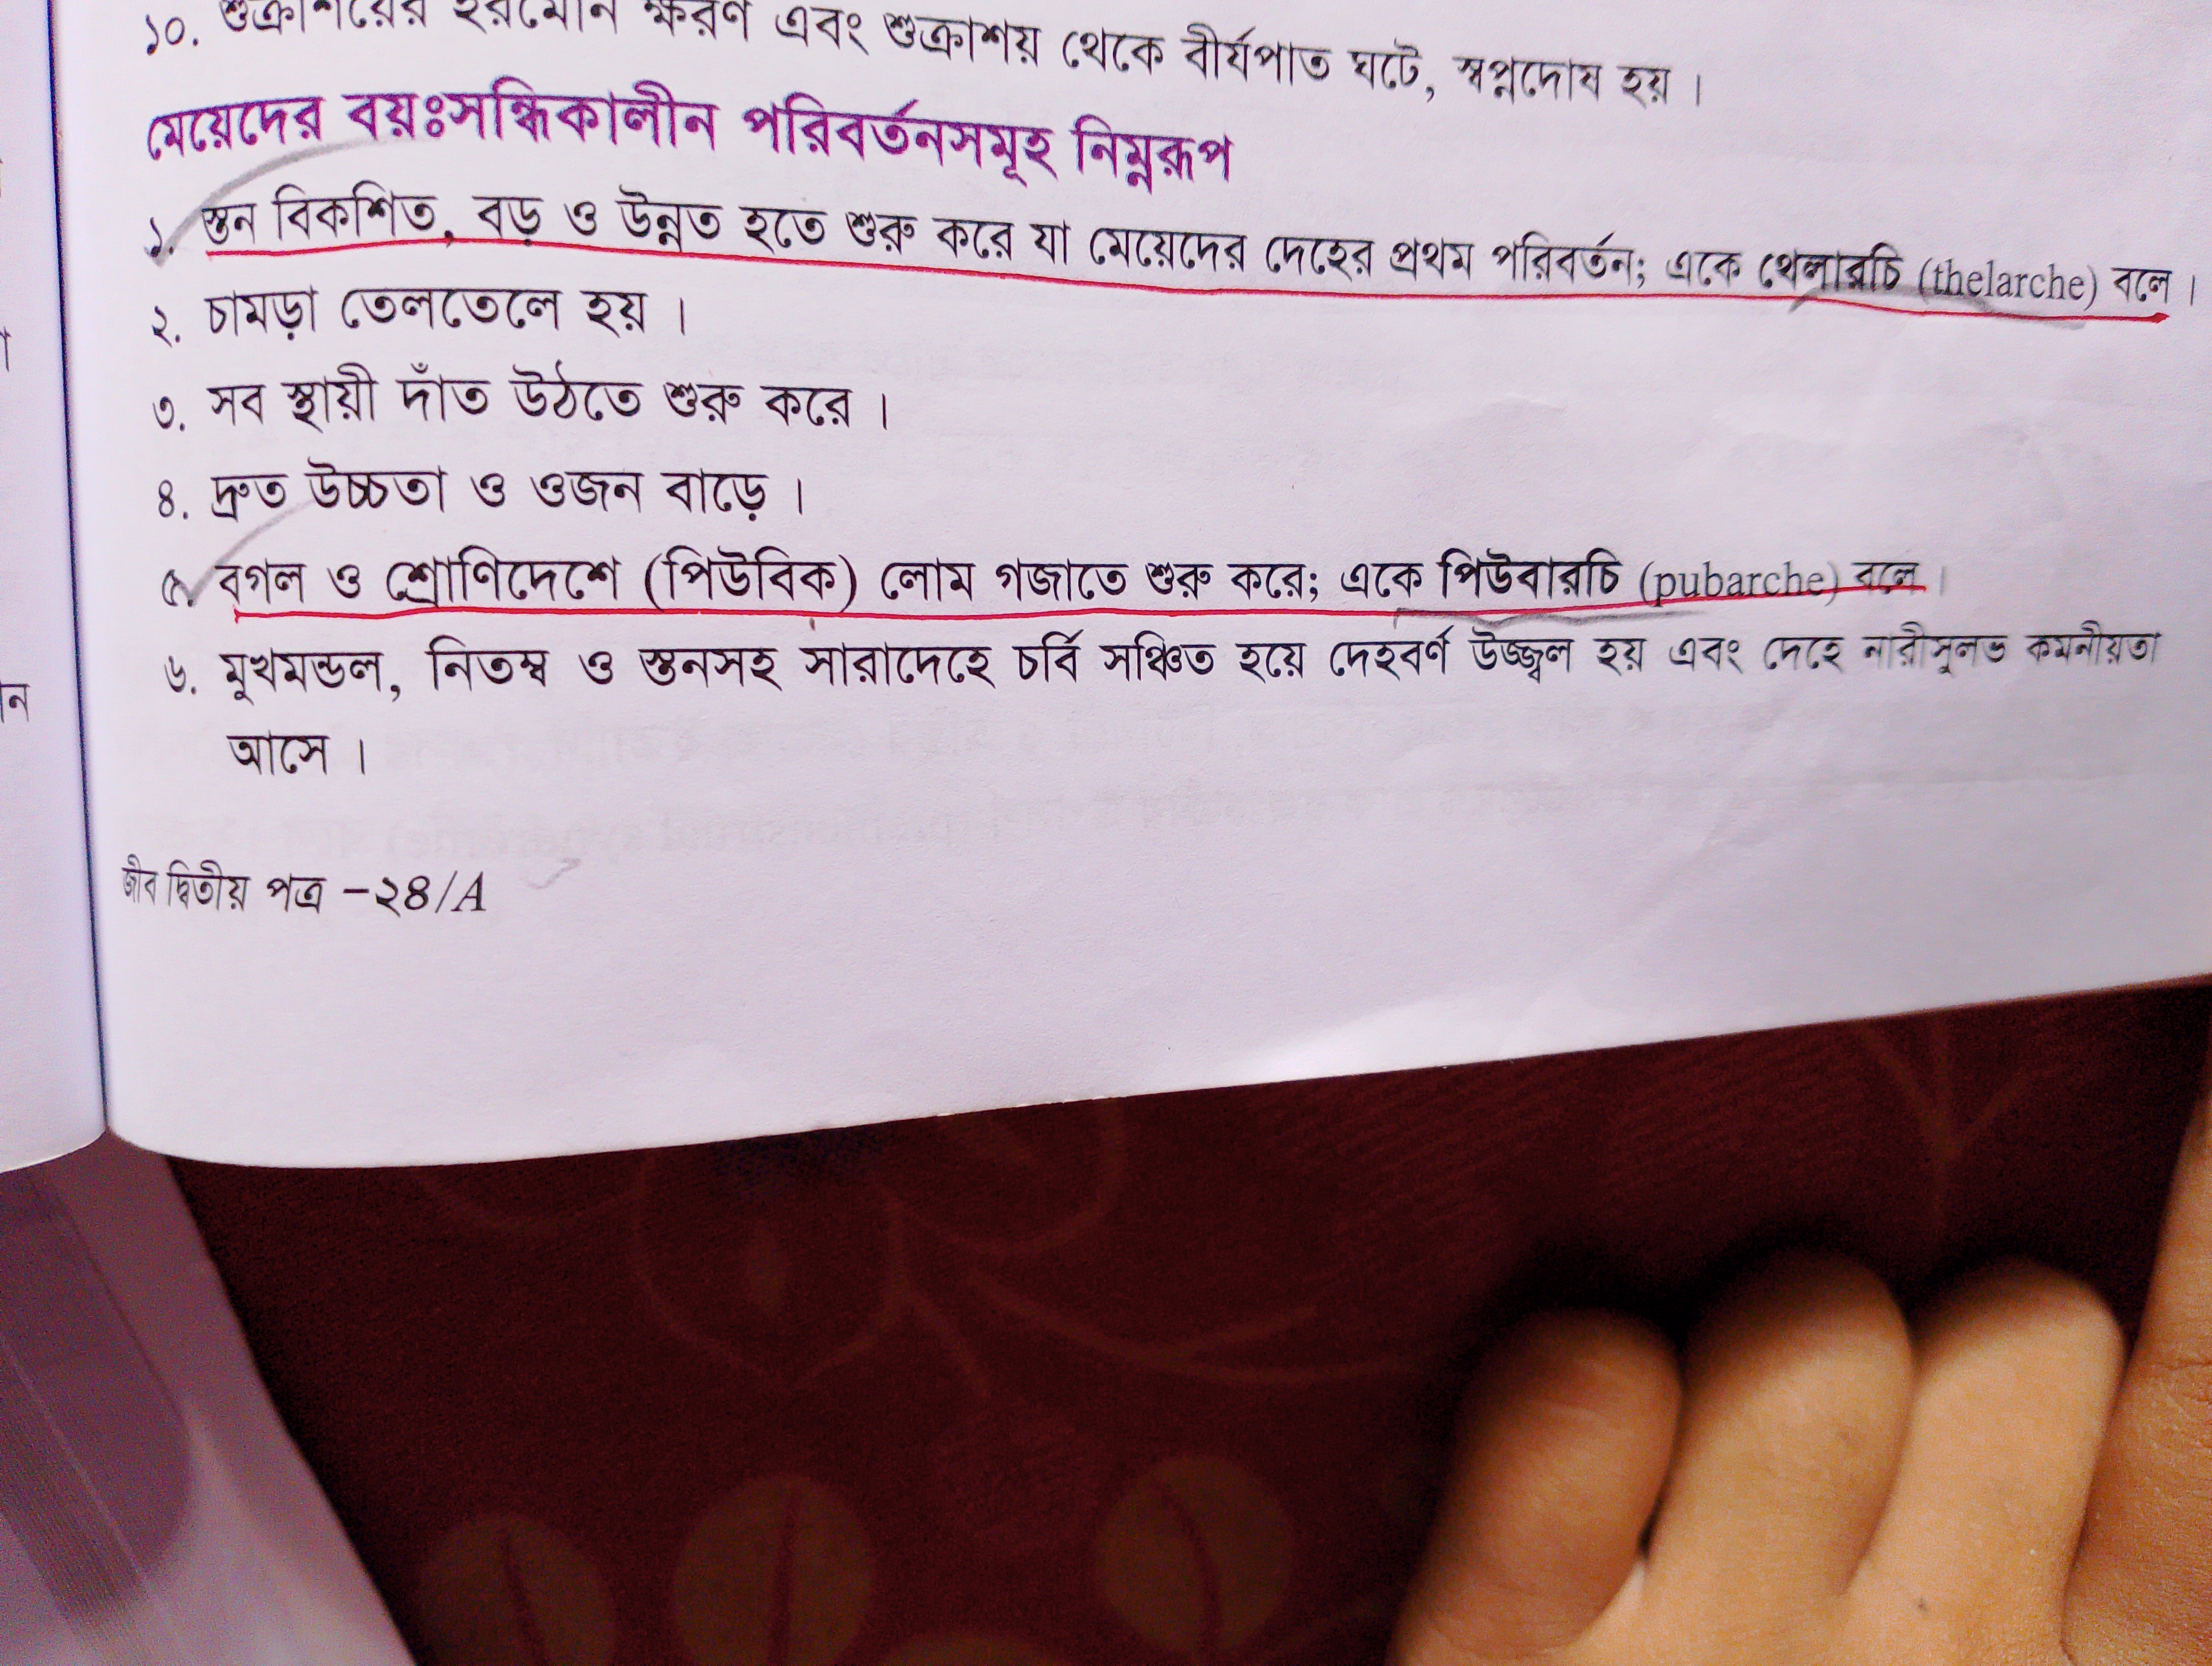 ১০. শুক্রাশয়ের হরমোন ক্ষরণ এবং শুক্রাশয় থেকে বীর্যপাত ঘটে, স্বপ্নদোষ হয় ।
মেয়েদের বয়ঃসন্ধিকালীন পরিবর্তনসমূহ নিম্নরূপ
১. স্তন বিকশিত, বড় ও উন্নত হতে শুরু করে যা মেয়েদের দেহের প্রথম পরিবর্তন; একে থেলারচি (thelarche) বলে ।
২. চামড়া তেলতেলে হয় ।
৩. সব স্থায়ী দাঁত উঠতে শুরু করে ।
৪. দ্রুত উচ্চতা ও ওজন বাড়ে ।
৫. বগল ও শ্রোণিদেশে (পিউবিক) লোম গজাতে শুরু করে; একে পিউবারচি (pubarche) বলে ।
৬. মুখমন্ডল, নিতম্ব ও স্তনসহ সারাদেহে চর্বি সঞ্চিত হয়ে দেহবর্ণ উজ্জ্বল হয় এবং দেহে নারীসুলভ কমনীয়তা
আসে ।
জীব দ্বিতীয় পত্র –২৪/A